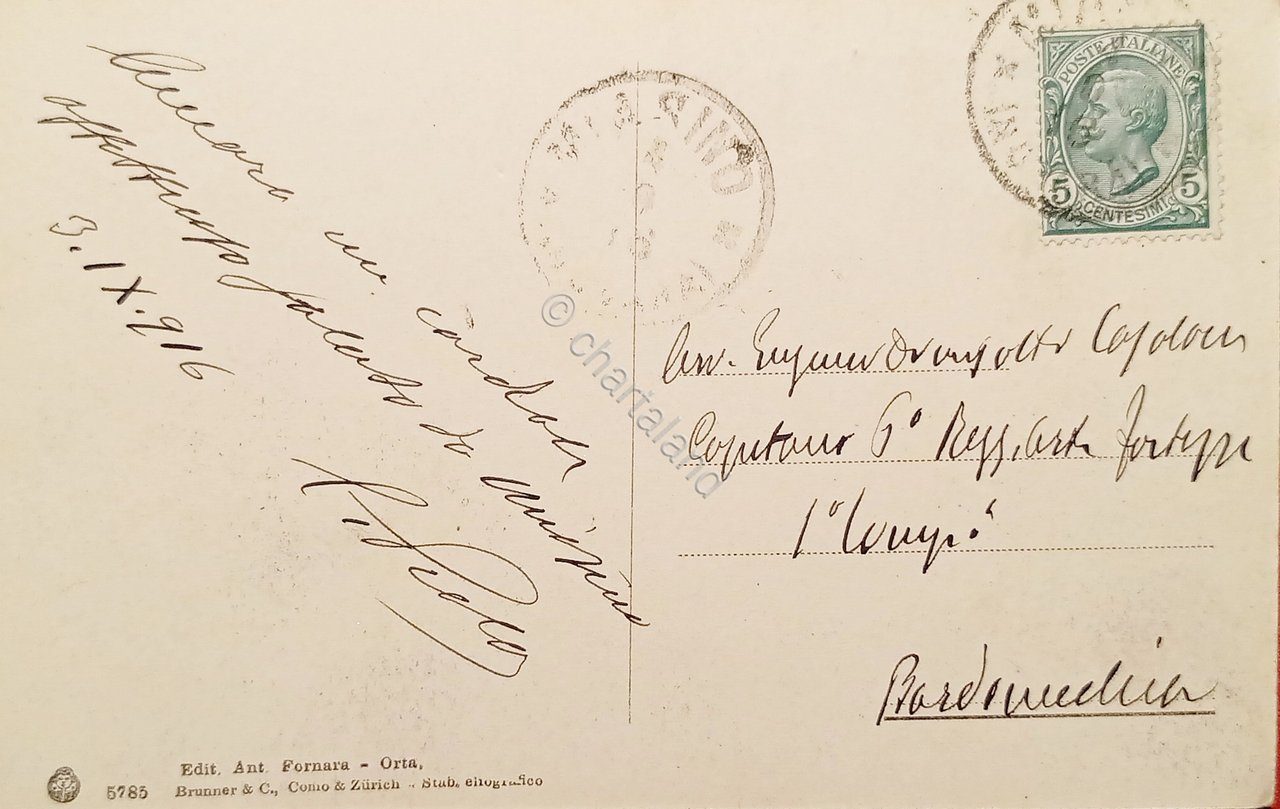 Ancora un cordiale
affettuoso saluto da
3.IX.916
MIASINO
POSTE ITALIANE
5 CENTESIMI 5
Avv. Capolari
Capitano 6° Regg. Art. Fortezza
1ª Comp.
Bardonecchia
© chartaland
5785
Edit. Ant. Fornara - Orta.
Brunner & C., Como & Zürich - Stab. eliografico